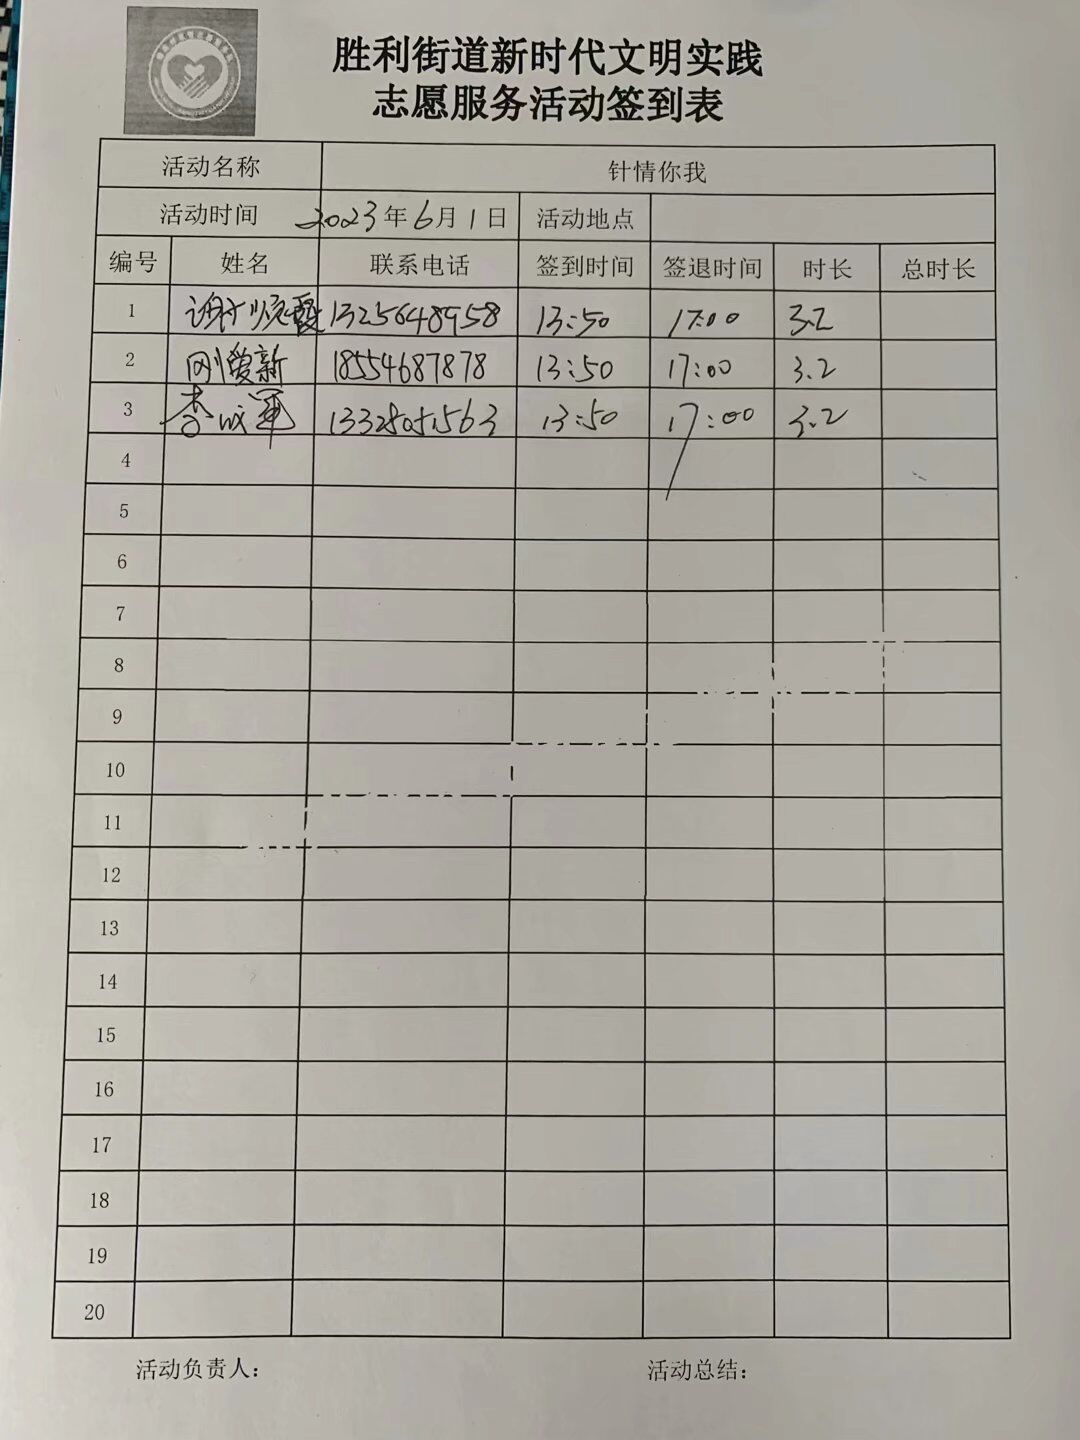 胜利街道新时代文明实践
志愿服务活动签到表
活动名称 针情你我
活动时间 2023年6月1日 活动地点
编号 姓名 联系电话 签到时间 签退时间 时长 总时长
1 谢晓霞 13256648958 13:50 17:00 3.2
2 刚爱新 18554687878 13:50 17:00 3.2
3 李成军 13:50 17:00 3.2
4
5
6
7
8
9
10
11
12
13
14
15
16
17
18
19
20
活动负责人： 活动总结：